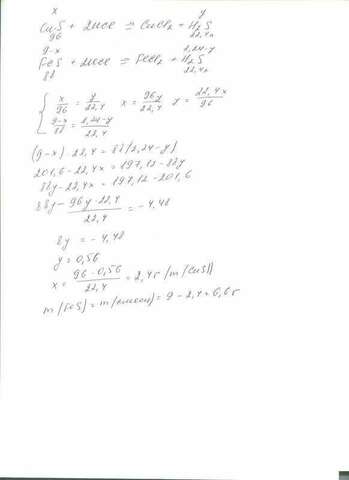 x y
CuS + 2HCl = CuCl₂ + H₂S
96 22,4л
9-x 2,24-y
FeS + 2HCl = FeCl₂ + H₂S
88 22,4л
x/96 = y/22,4 x = 96y/22,4 y = 22,4x/96
9-x/88 = 2,24-y/22,4
(9-x)·22,4 = 88(2,24-y)
201,6-22,4x = 197,12-88y
88y-22,4x = 197,12-201,6
88y - 96y·22,4/22,4 = -4,48
8y = -4,48
y = 0,56
x = 96·0,56/22,4 = 2,4г /m(CuS))
m(FeS) = m(смеси) = 9-2,4=6,6г